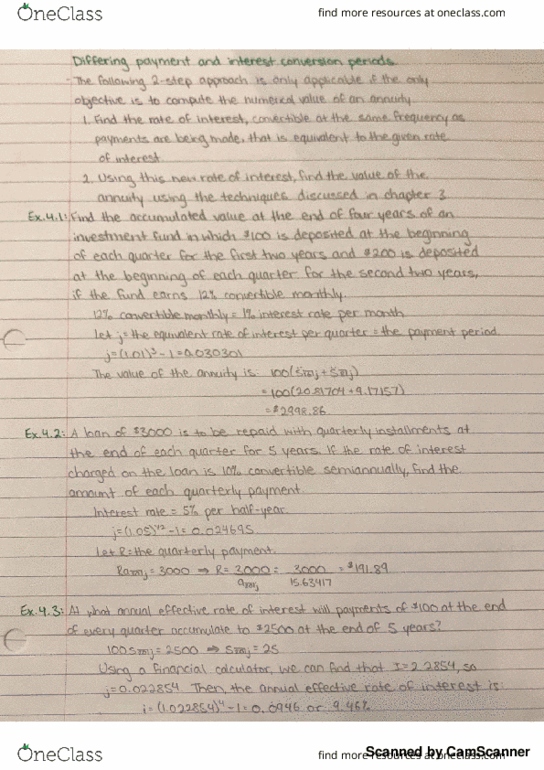 OneClass
find more resources at oneclass.com
Differing payment and interest conversion periods
- The following 2-step approach is only applicable if the only
objective is to compute the numerical value of an annuity
1. Find the rate of interest, convertible at the same frequency as
payments are being made, that is equivalent to the given rate
of interest
2. Using this new rate of interest, find the value of the
annuity using the techniques discussed in chapter 3
Ex.4.1: Find the accumulated value at the end of four years of an
investment fund in which $100 is deposited at the beginning
of each quarter for the first two years and $200 is deposited
at the beginning of each quarter for the second two years,
if the fund earns 12% convertible monthly.
12% convertible monthly = 1% interest rate per month
Let j = the equivalent rate of interest per quarter = the payment period.
j = (1.01)³ - 1 = 0.030301
The value of the annuity is:
= 100(20.81704 + 9.17157)
= $2998.86
Ex.4.2: A loan of $3000 is to be repaid with quarterly installments at
the end of each quarter for 5 years. If the rate of interest
charged on the loan is 10% convertible semiannually, find the
amount of each quarterly payment.
Interest rate = 5% per half-year.
j = (1.05)^1/2 - 1 = 0.024695
Let R = the quarterly payment.
= 3000 → R = 3000 = 3000 = $191.89
15.63417
Ex.4.3: At what annual effective rate of interest will payments of $100 at the end
of every quarter accumulate to $2500 at the end of 5 years?
= 2500 → = 25
Using a financial calculator, we can find that I = 2.2854, so
j = 0.022854 Then, the annual effective rate of interest is:
i = (1.022854)⁴ - 1 = 0.0946 or 9.46%
OneClass
find more resources at oneclass.com
Scanned by CamScanner